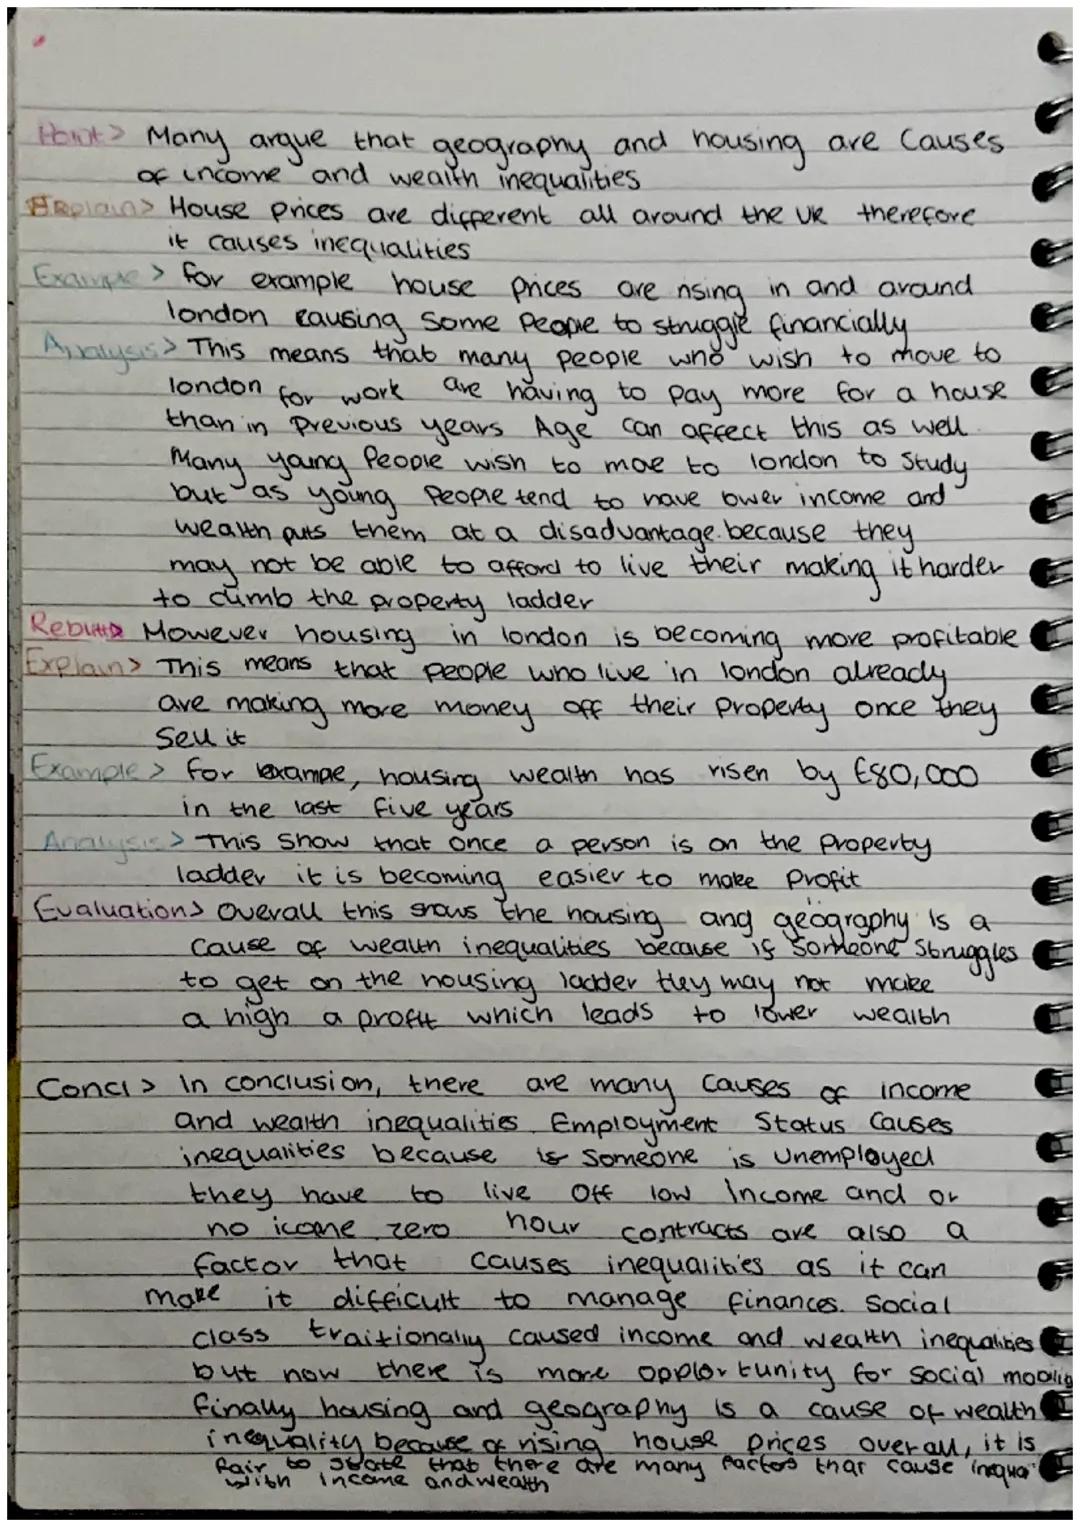 Point> Many argue that geography and housing are Causes
of income and wealth inequalities
Explain> House Prices are different all around the UK therefore
it causes inequalities
Example> for example house prices are rising in and around
london causing Some People to struggle financially
Analysis> This means that many people who wish to move to
london for work are having to pay more for a house
than in Previous years Age can affect this as well.
Many young People wish to moe to london to Study
but as young People tend to have lower income and
wealth puts them at a disadvantage because they
may not be able to afford to live their making it harder
to climb the property ladder
Rebutt> However housing in london is becoming more profitable
Explain> This means that people who live in london already
are making more money off their Property once they
Sell it
Example> for exampe, housing wealth has risen by £80,000
in the last five years
Analysis> This Show that once a person is on the Property
ladder it is becoming easier to make Profit
Evaluation> Overall this shows the housing and geography is a
Cause of wealth inequalities because if Someone Struggles
to get on the housing ladder they may not make
a high a profit which leads to lower wealth
Concl> In conclusion, there are many Causes of income
and wealth inequalities. Employment Status Causes
inequalities because is Someone is Unemployed
they have to live Off low Income and or
no icome. zero hour contracts are also a
factor that causes inequalities as it can
make it difficult to manage finances. Social
class traitionally caused income and wealth inequalities
but now there is more opplortunity for Social
finally housing and geography is a cause of wealth
inequality because of rising house prices overall, it is
fair to state that there are many factors that cause
with income and wealth